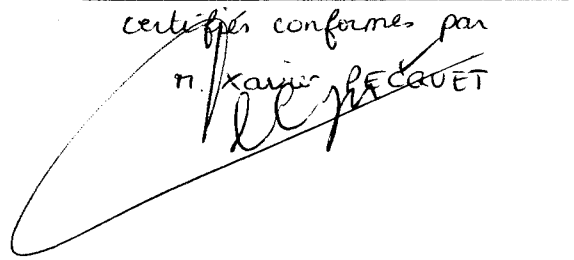 certifiés conformes par
M. Xavier PECQUET